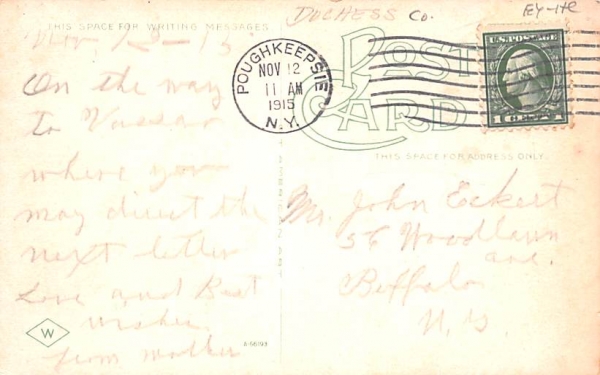 DUCHESS Co.
EY-HR
THIS SPACE FOR WRITING MESSAGES
Nov 12-15
On the way
To Vassar
where you
may direct the
next letter
Love and Best
wishes
from mother
W
A-66193
POUGHKEEPSIE
NOV 12
11 AM
1915
N.Y.
POST
CARD
U.S. POSTAGE
1 CENT 1
THIS SPACE FOR ADDRESS ONLY.
Mr. John Eckert
56 Woodlawn
ave.
Buffalo
N. Y.